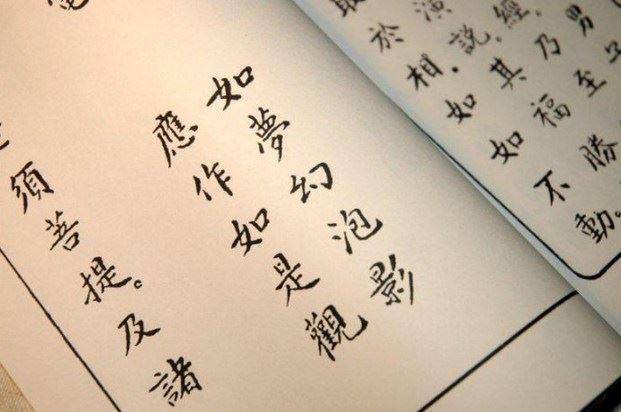 男子
經，乃至
演說，其福勝
取於相。如如不動。
如夢幻泡影
應作如是觀
須菩提。及諸